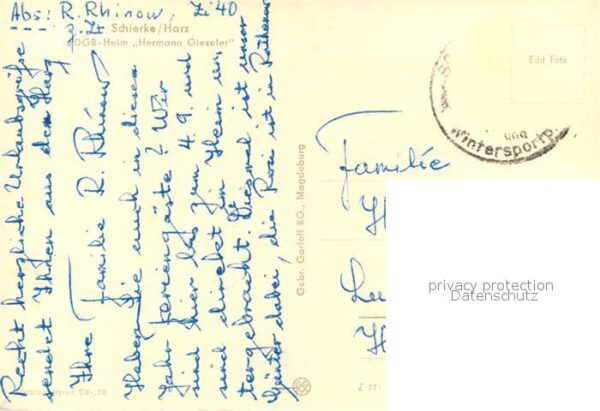 Abs: R. Rhinow, Zi 40
z. Zt. Schierke/Harz
FDGB-Heim „Hermann Gieseler"
Recht herzliche Urlaubsgrüße
sendet Ihnen aus dem Harz
Ihre Familie R. Rhinow
Haben Sie auch in diesem
Jahr Feriengäste? Wir
sind hier bis zum 4. 9. und
sind direkt im Heim un-
tergebracht. Diesmal ist unser
Günter dabei, die Rosi ist in
Gebr. Garloff KG., Magdeburg
Echt Foto
und
Wintersportp
Familie
privacy protection
Datenschutz
Z 771